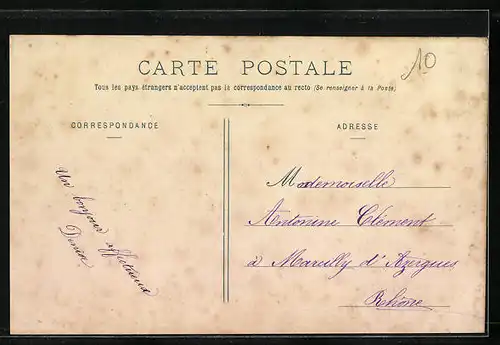 10
CARTE POSTALE
Tous les pays étrangers n'acceptent pas la correspondance au recto (Se renseigner à la Poste)
CORRESPONDANCE
ADRESSE
Un bonjour affectueux
Denise
Mademoiselle
Antonine Clément
à Marcilly d'Azergues
Rhône